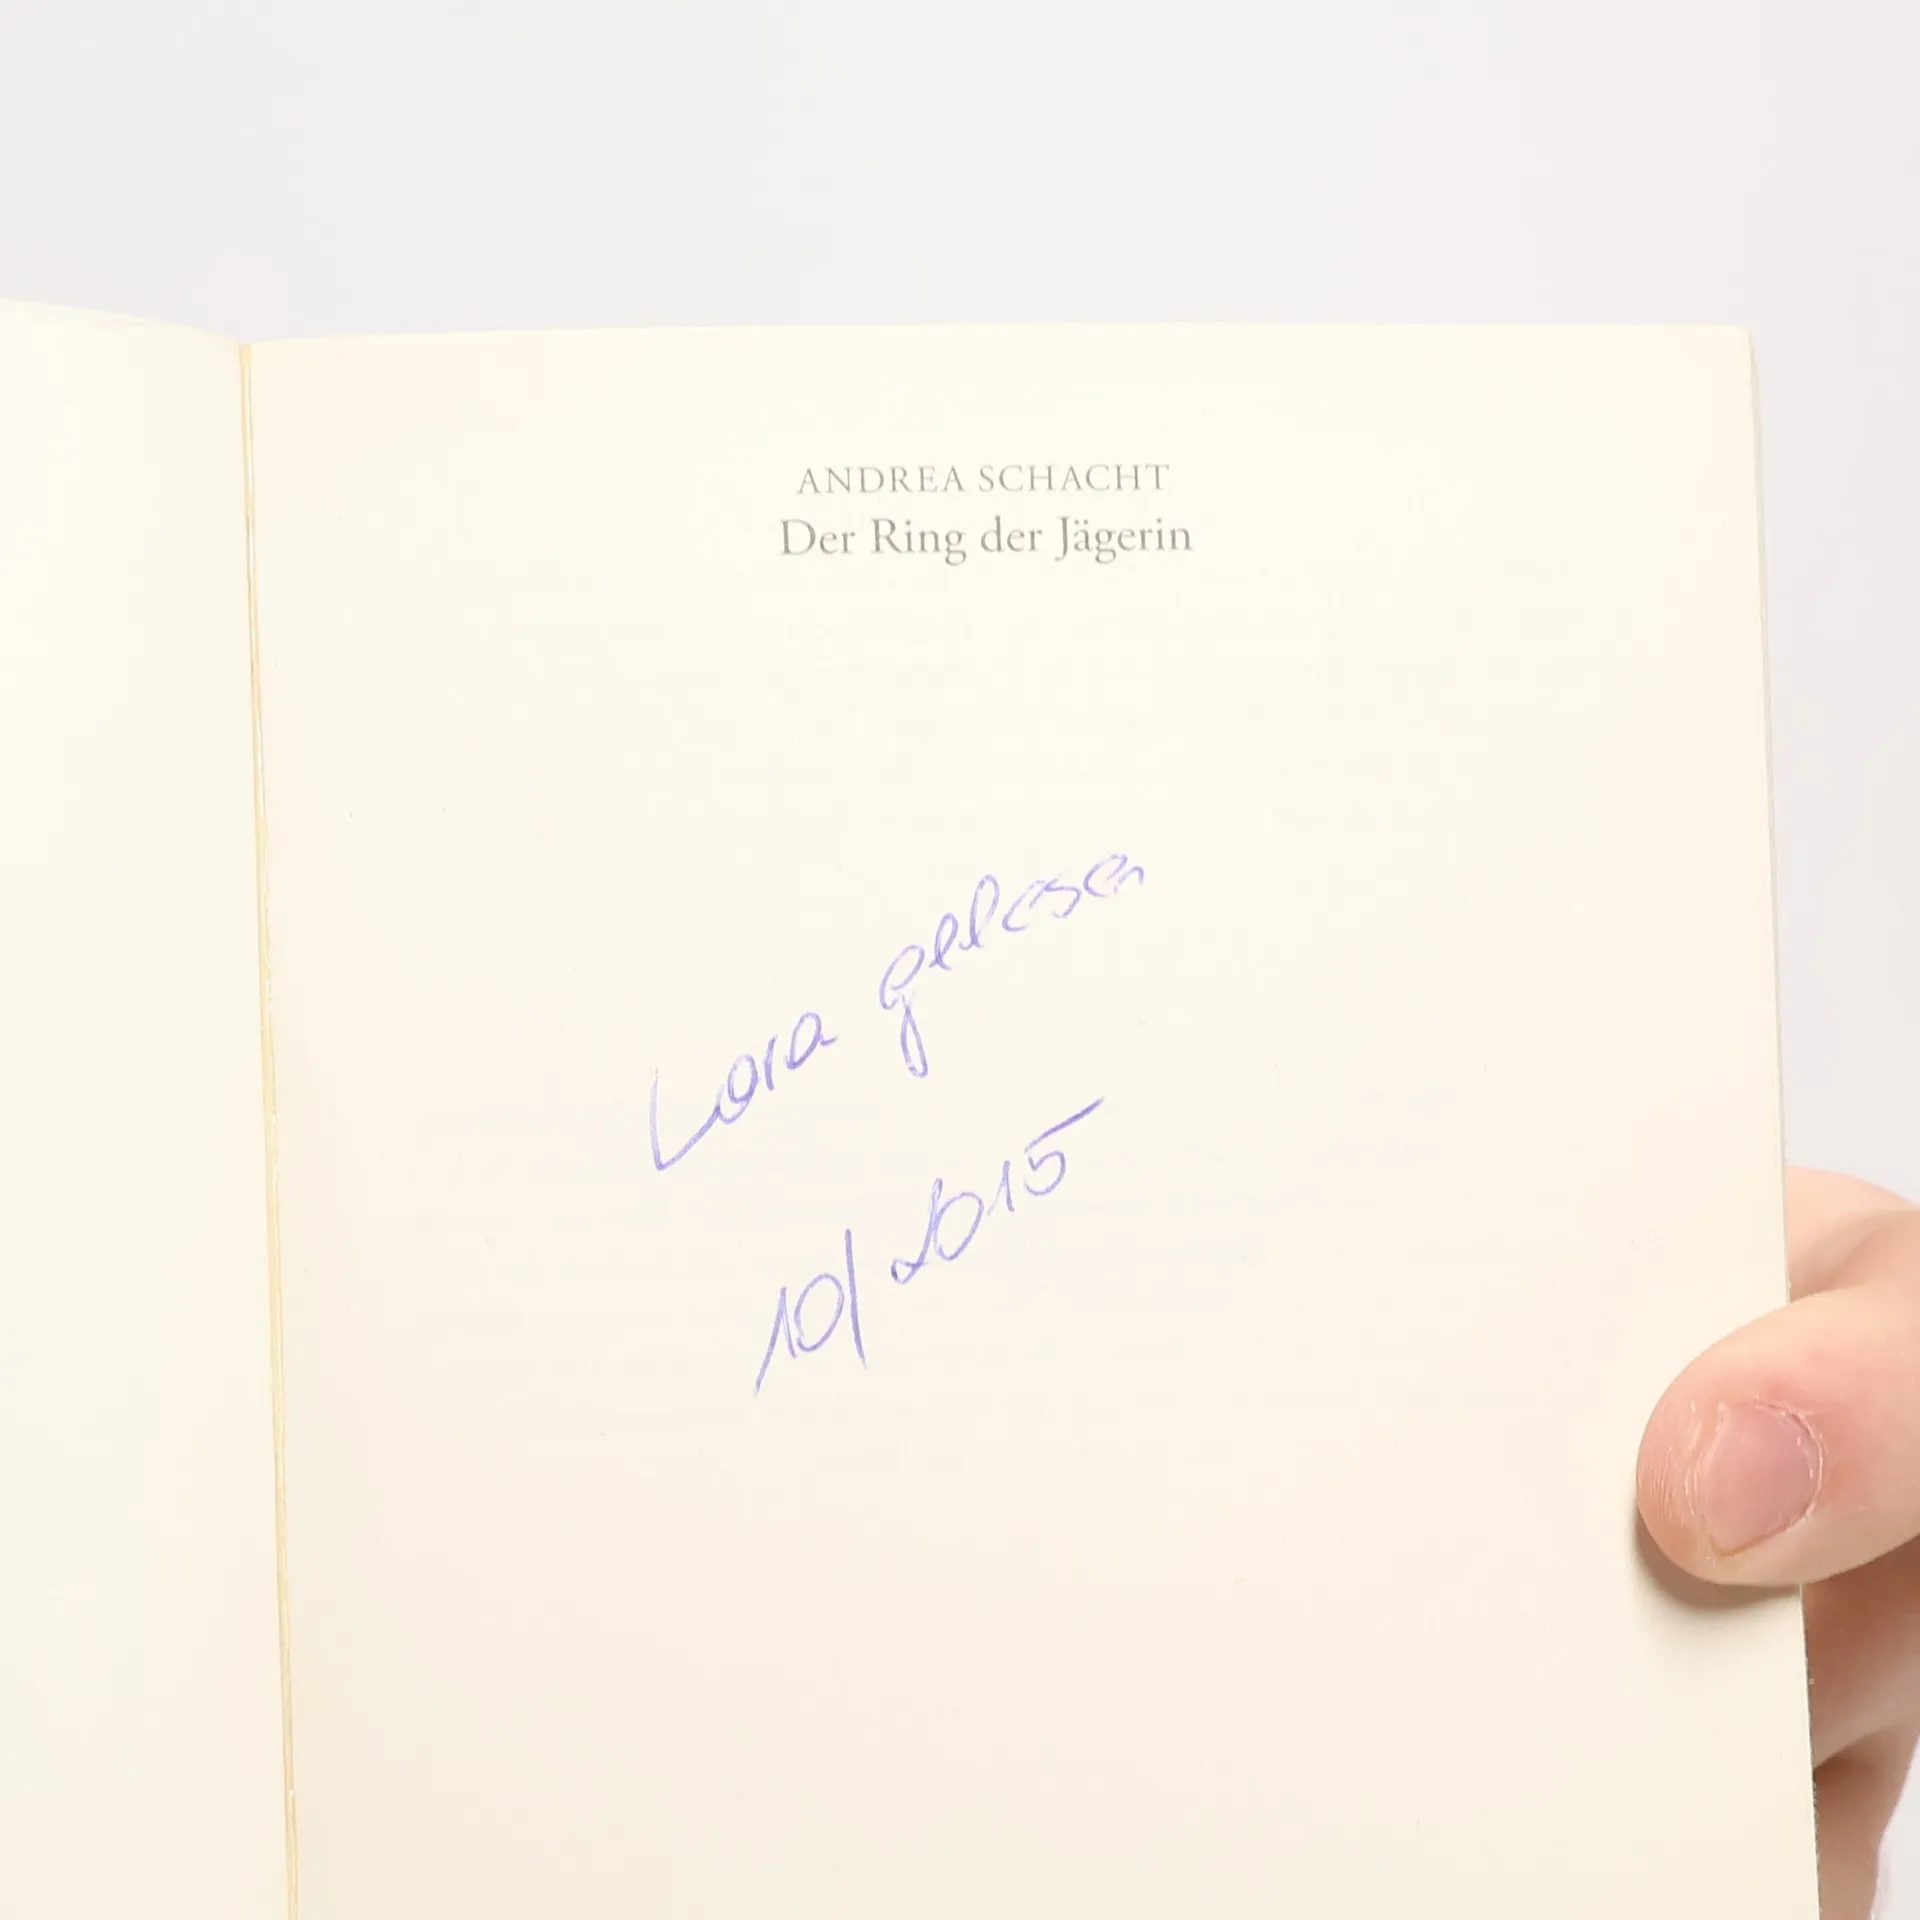 ANDREA SCHACHT
Der Ring der Jägerin
Lora gelesen
10/2015